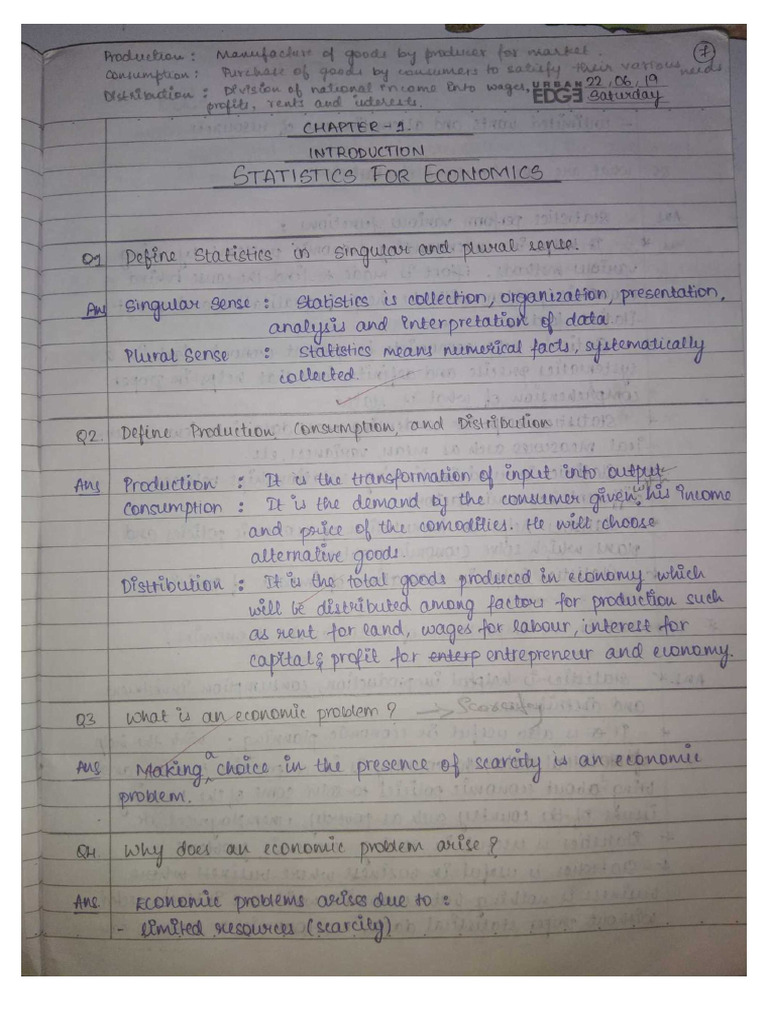 Production: Manufacture of goods by producer for market.
7
Consumption: Purchase of goods by consumers to satisfy their various needs
Distribution: Division of national income into wages,
profits, rents and interests.
URBAN EDGE
22.06.19
Saturday
CHAPTER-1.
INTRODUCTION
STATISTICS FOR ECONOMICS
Q1 Define Statistics in singular and plural sense.
Ans Singular Sense: Statistics is collection, organization, presentation,
analysis and interpretation of data
Plural Sense : Statistics means numerical facts, systematically
collected.
Q2. Define Production, Consumption, and Distribution
Ans Production : It is the transformation of input into output
Consumption : It is the demand by the consumer given his income
and price of the comodities. He will choose
alternative goods.
Distribution : It is the total goods produced in economy which
will be distributed among factors for production such
as rent for land, wages for labour, interest for
capital & profit for enterp entrepreneur and economy.
Q3 What is an economic problem? → Scarcity
Ans Making a choice in the presence of scarcity is an economic
problem.
Q4. Why does an economic problem arise?
Ans Economic problems arises due to :
- limited resources (scarcity)